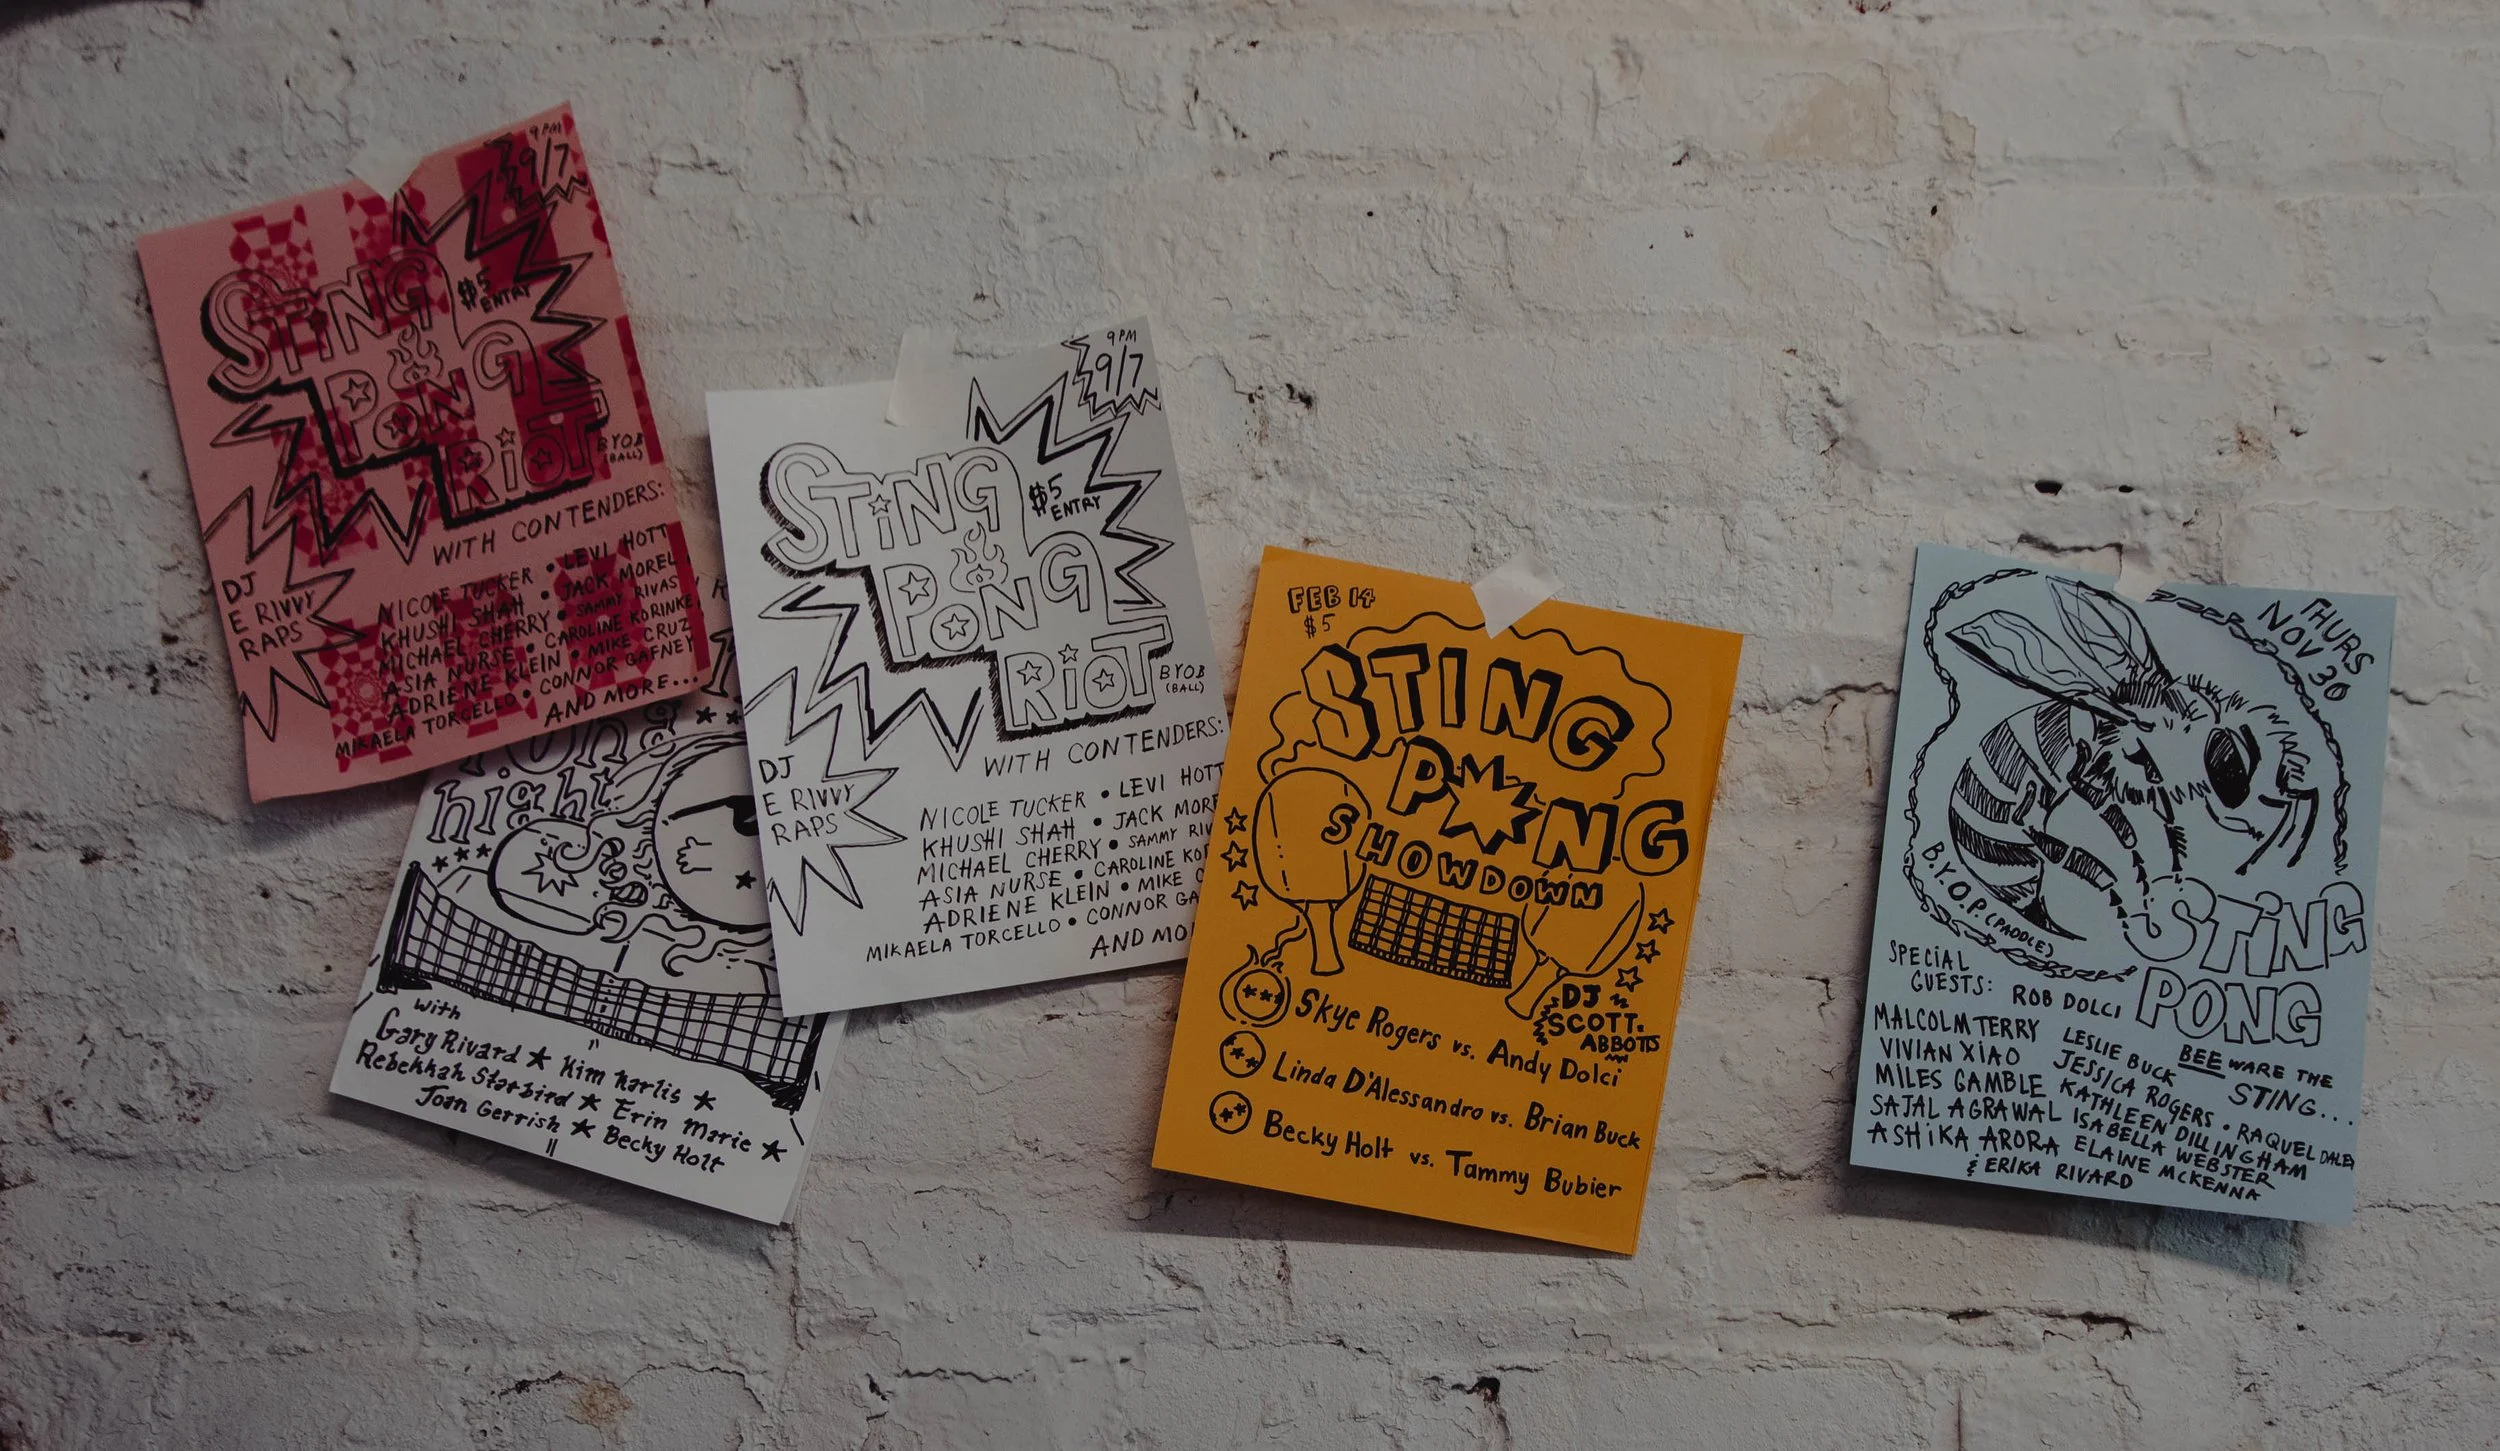 9PM
9/7
STING
PONG
RIOT
$5
ENTRY
BYOB
(BALL)
WITH CONTENDERS:
DJ
E RIVVY
RAPS
NICOLE TUCKER • LEVI HOTT
KHUSHI SHAH • JACK MOREL
MICHAEL CHERRY • SAMMY RIVAS
ASIA NURSE • CAROLINE KORINKE
ADRIENE KLEIN • MIKE CRUZ
MIKAELA TORCELLO • CONNOR GAFNEY
AND MORE...
night
with
Gary Rivard ★ Kim Karlis ★
Rebekkah Starbird ★ Erin Marie ★
Joan Gerrish ★ Becky Holt
9PM
9/7
STING
PONG
RIOT
$5
ENTRY
BYOB
(BALL)
WITH CONTENDERS:
DJ
E RIVVY
RAPS
NICOLE TUCKER • LEVI HOTT
KHUSHI SHAH • JACK MORE
MICHAEL CHERRY • SAMMY RIV
ASIA NURSE • CAROLINE KO
ADRIENE KLEIN • MIKE C
MIKAELA TORCELLO • CONNOR GA
AND MO
FEB 14
$5
STING
PONG
SHOWDOWN
DJ
SCOTT.
ABBOTTS
Skye Rogers vs. Andy Dolci
Linda D'Alessandro vs. Brian Buck
Becky Holt vs. Tammy Bubier
THURS
NOV 30
B.Y.O.P. (PADDLE)
STING
PONG
BEE WARE THE
STING...
SPECIAL
GUESTS: ROB DOLCI
MALCOLM TERRY LESLIE BUCK
VIVIAN XIAO JESSICA ROGERS • RAQUEL DALEY
MILES GAMBLE KATHLEEN DILLINGHAM
SAJAL AGRAWAL ISABELLA WEBSTER
ASHIKA ARORA ELAINE MCKENNA
& ERIKA RIVARD